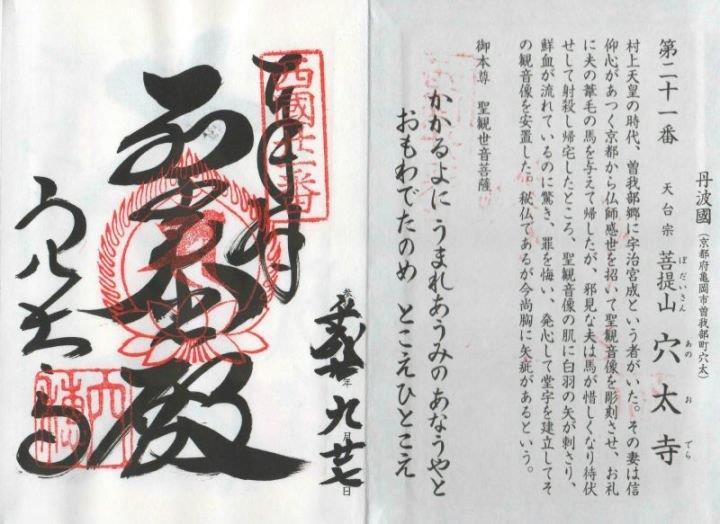 丹波國(京都府亀岡市曽我部町穴太)
第二十一番 天台宗 菩提山 穴太寺
ぼだいさん あのおでら
村上天皇の時代、曽我部郷に宇治宮成という者がいた。その妻は信
仰心があつく京都から仏師感世を招いて聖観音像を彫刻させ、お礼
に夫の葦毛の馬を与えて帰したが、邪見な夫は馬が惜しくなり待伏
せして射殺し帰宅したところ、聖観音像の肌に白羽の矢が刺さり、
鮮血が流れているのに驚き、罪を悔い、発心して堂宇を建立してそ
の観音像を安置した。秘仏であるが今尚胸に矢疵があるという。
御本尊 聖観世音菩薩
かかるよに うまれあうみの あなうやと
おもわでたのめ とこえひとこえ
年九月廿七日
西國廿一番
奉拝
殿
穴太寺